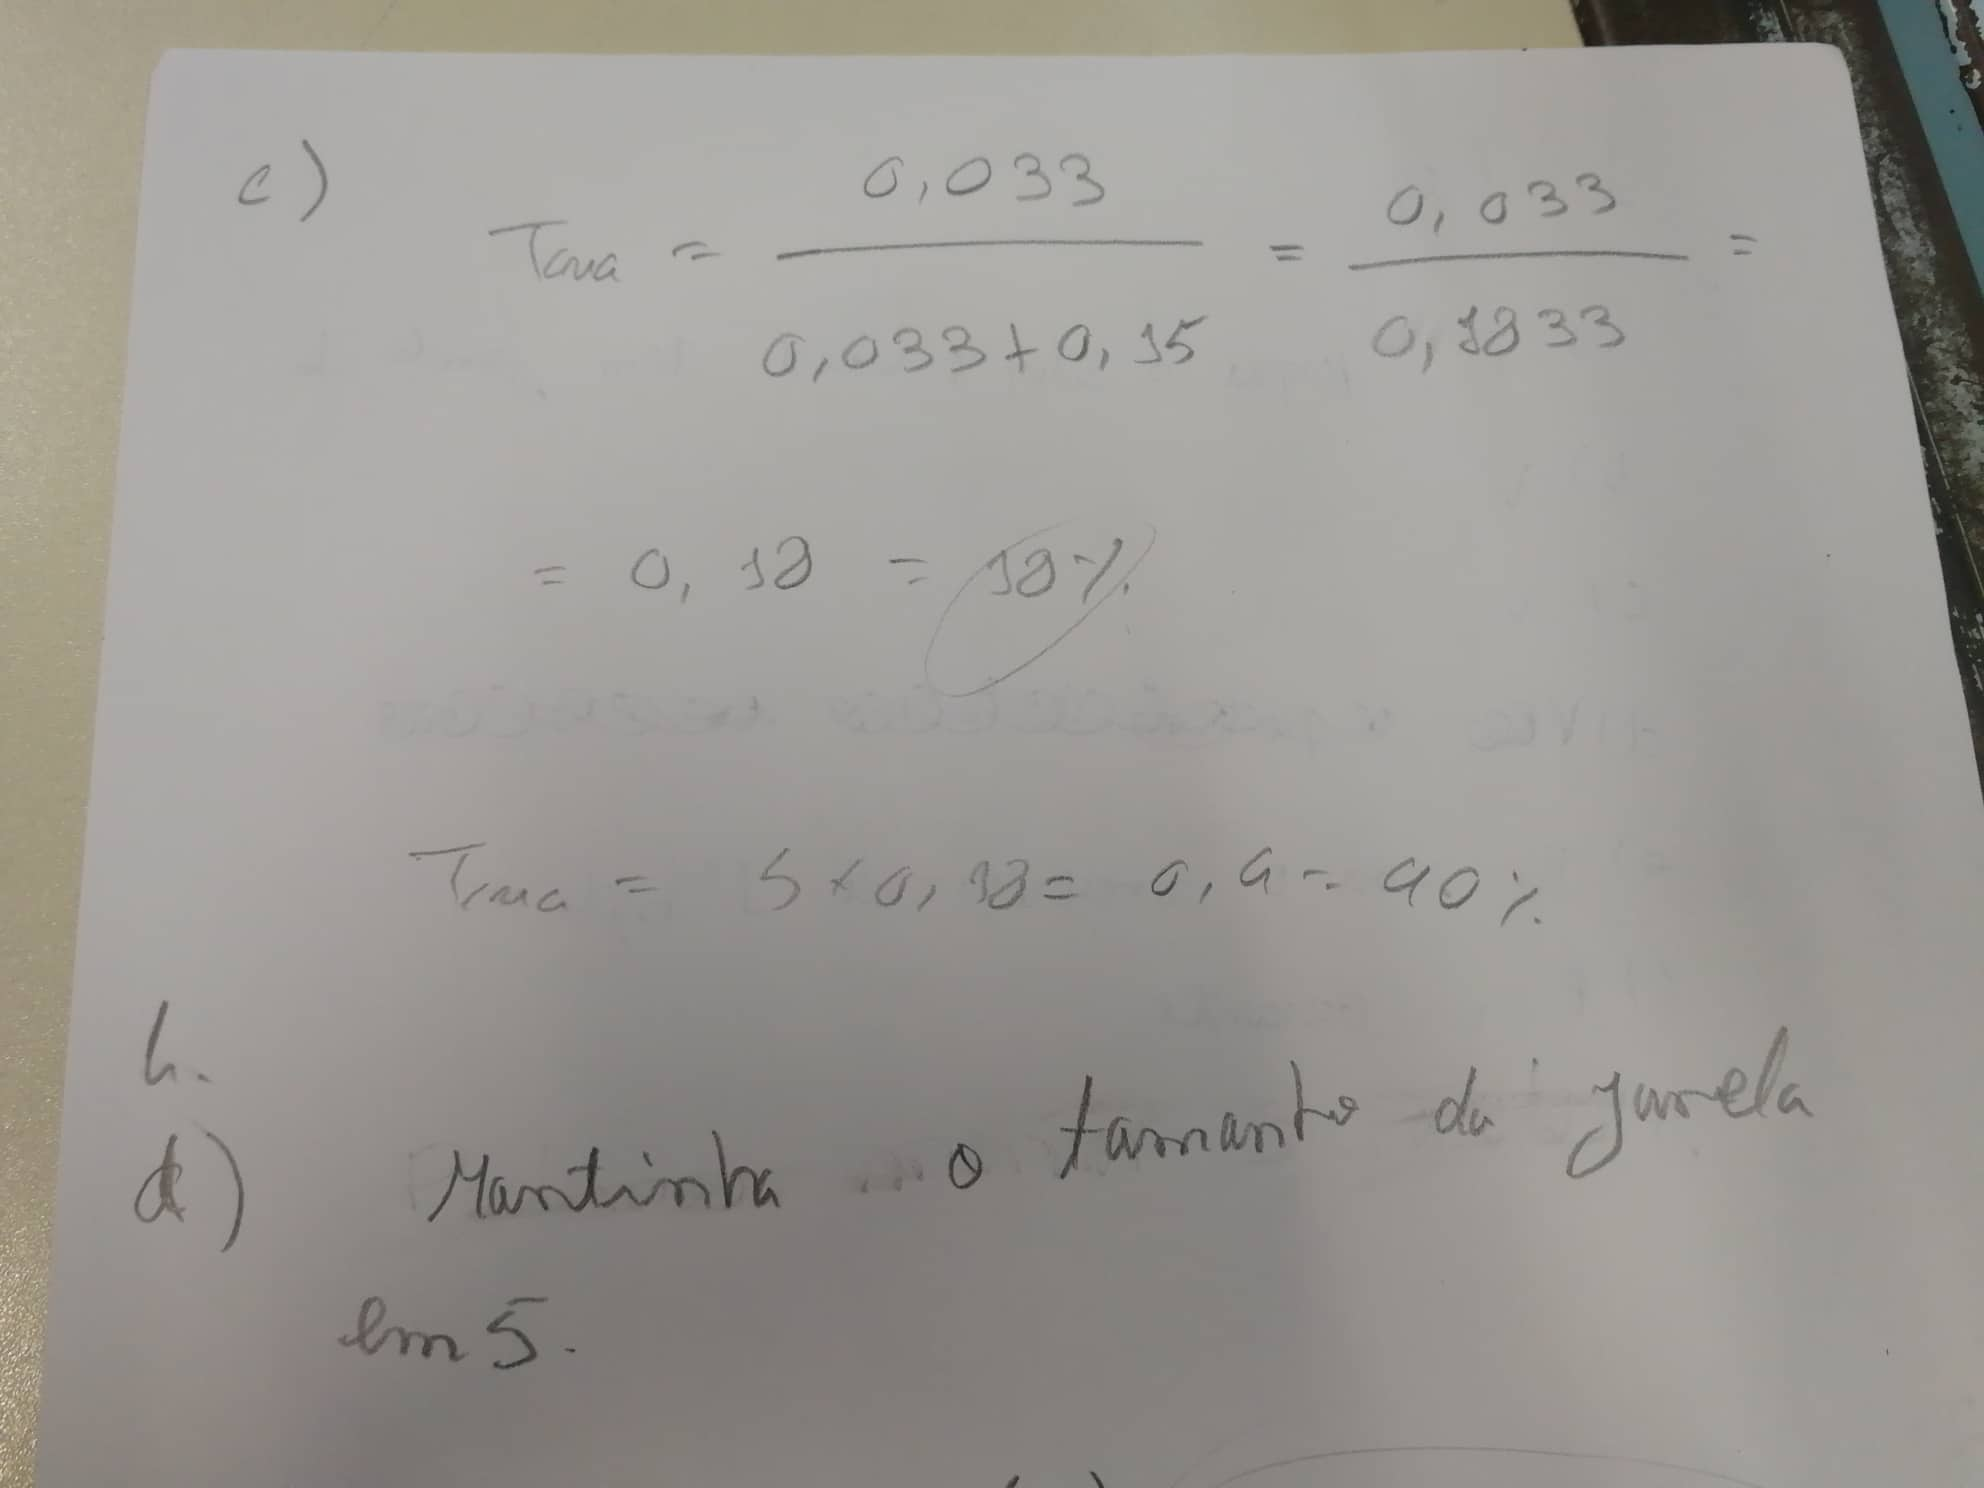 c)
Taxa = 0,033 / 0,033 + 0,15 = 0,033 / 0,1833 =
= 0,18 = 18%
Taxa = 5 x 0,18 = 0,9 = 90%
h.
d) Mantinha o tamanho da janela
em 5.